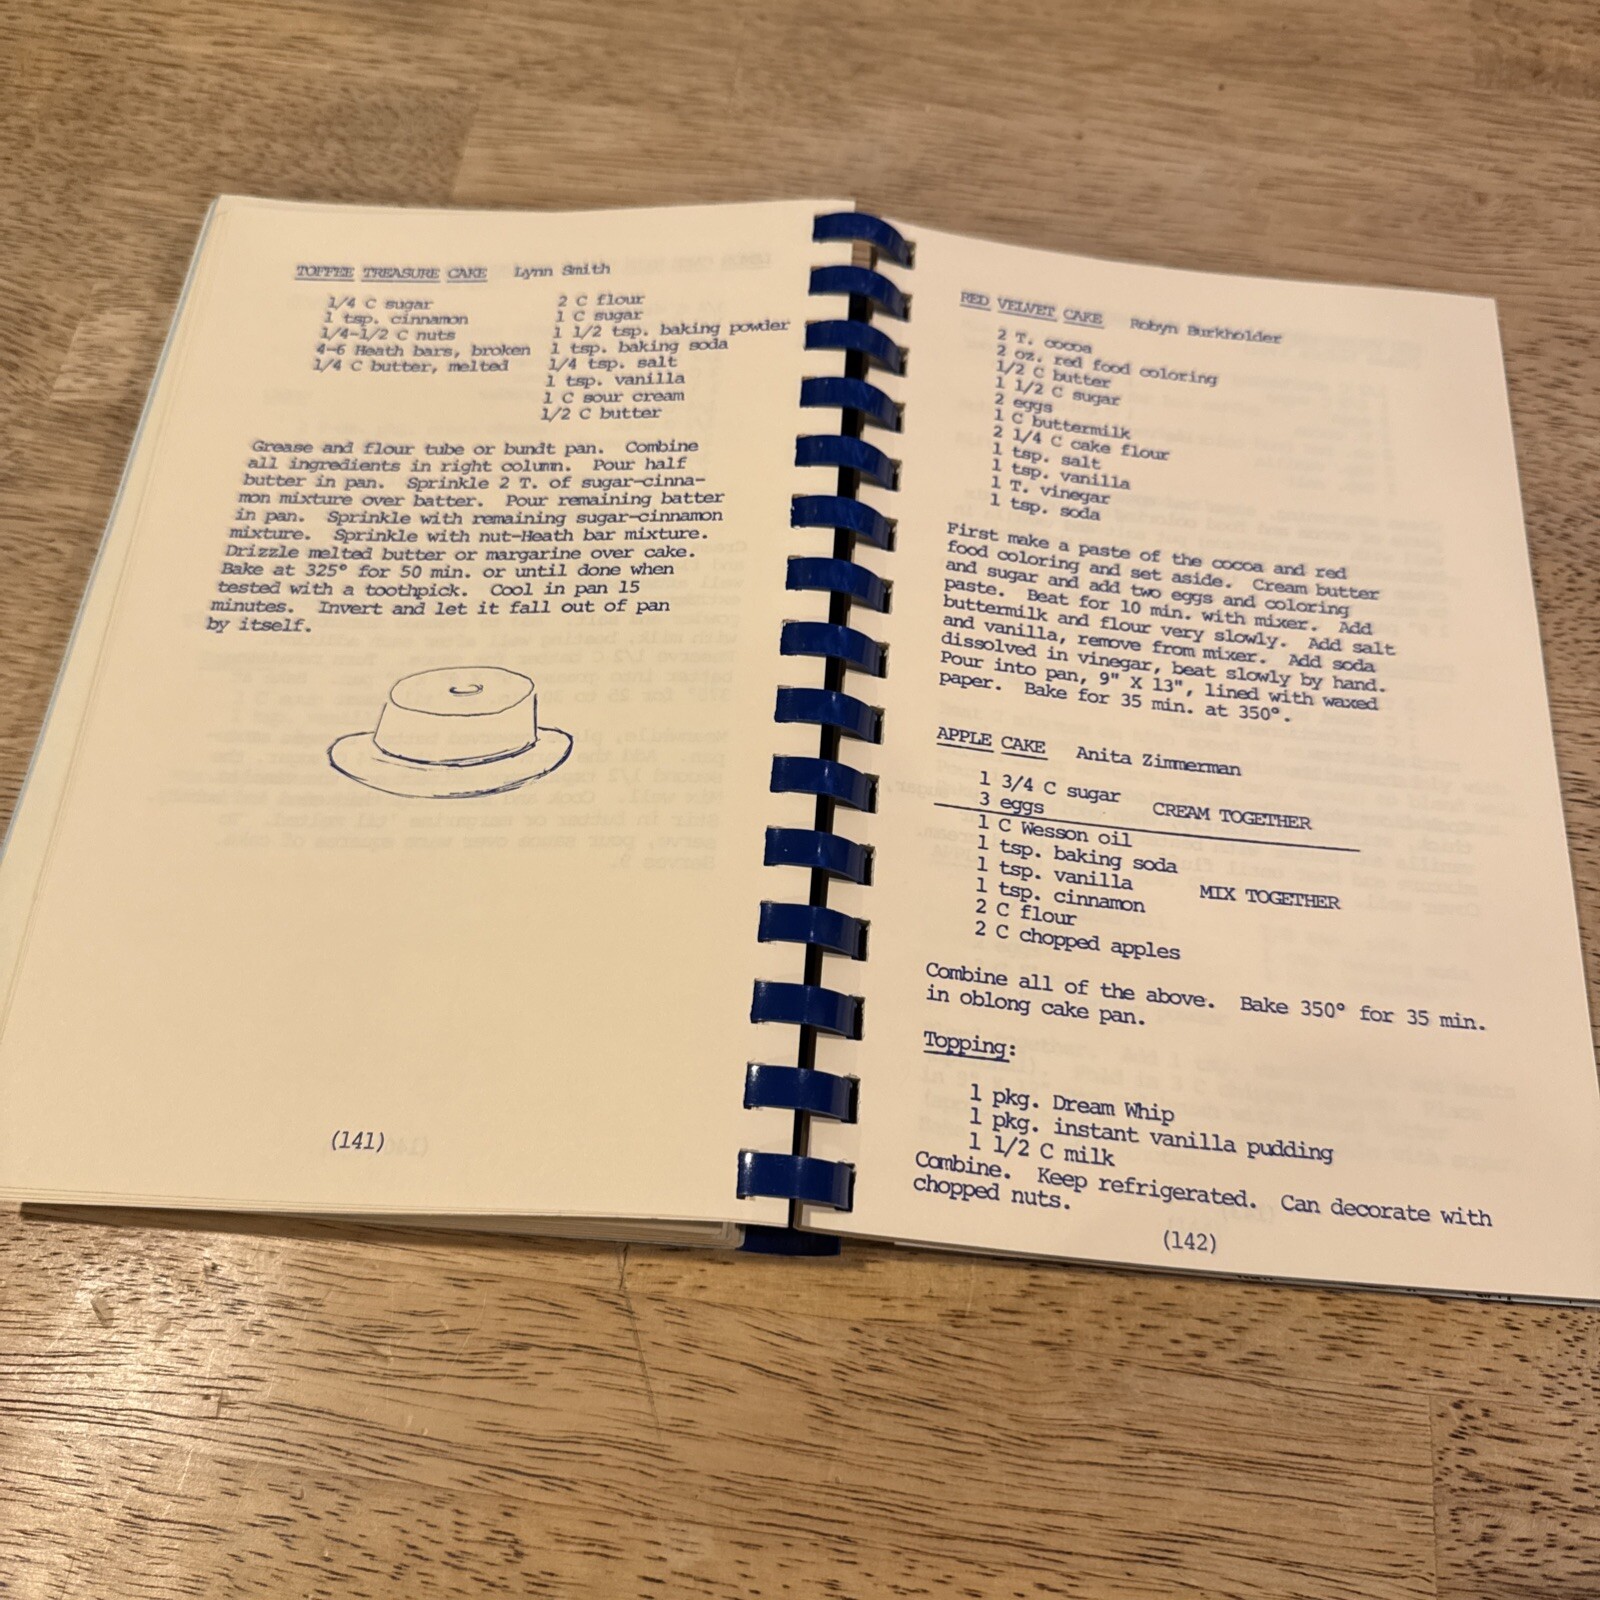 TOFFEE TREASURE CAKE Lynn Smith
1/4 C sugar
1 tsp. cinnamon
1/4-1/2 C nuts
4-6 Heath bars, broken
1/4 C butter, melted
2 C flour
1 C sugar
1 1/2 tsp. baking powder
1 tsp. baking soda
1/4 tsp. salt
1 tsp. vanilla
1 C sour cream
1/2 C butter
Grease and flour tube or bundt pan. Combine
all ingredients in right column. Pour half
butter in pan. Sprinkle 2 T. of sugar-cinna-
mon mixture over batter. Pour remaining batter
in pan. Sprinkle with remaining sugar-cinnamon
mixture. Sprinkle with nut-Heath bar mixture.
Drizzle melted butter or margarine over cake.
Bake at 325° for 50 min. or until done when
tested with a toothpick. Cool in pan 15
minutes. Invert and let it fall out of pan
by itself.
(141)
RED VELVET CAKE Robyn Burkholder
2 T. cocoa
2 oz. red food coloring
1/2 C butter
1 1/2 C sugar
2 eggs
1 C buttermilk
2 1/4 C cake flour
1 tsp. salt
1 tsp. vanilla
1 T. vinegar
1 tsp. soda
First make a paste of the cocoa and red
food coloring and set aside. Cream butter
and sugar and add two eggs and coloring
paste. Beat for 10 min. with mixer. Add
buttermilk and flour very slowly. Add salt
and vanilla, remove from mixer. Add soda
dissolved in vinegar, beat slowly by hand.
Pour into pan, 9" X 13", lined with waxed
paper. Bake for 35 min. at 350°.
APPLE CAKE Anita Zimmerman
1 3/4 C sugar
3 eggs CREAM TOGETHER
1 C Wesson oil
1 tsp. baking soda
1 tsp. vanilla MIX TOGETHER
1 tsp. cinnamon
2 C flour
2 C chopped apples
Combine all of the above. Bake 350° for 35 min.
in oblong cake pan.
Topping:
1 pkg. Dream Whip
1 pkg. instant vanilla pudding
1 1/2 C milk
Combine. Keep refrigerated. Can decorate with
chopped nuts.
(142)